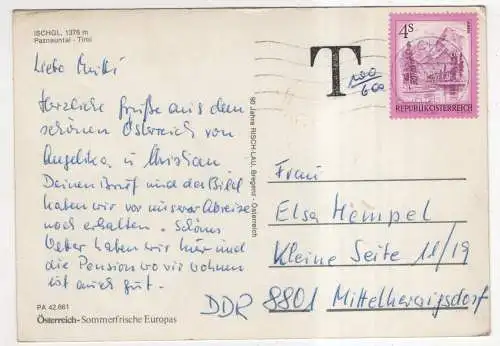 ISCHGL, 1376 m
Paznauntal - Tirol
Liebe Mutti
Herzliche Grüße aus dem
schönen Österreich von
Angelika u Christian
Deinen Brief und das Bild
haben wir vor unserer Abreise
noch erhalten. Schönes
Wetter haben wir hier und
die Pension wo wir wohnen
ist auch gut.
PA 42.661
Österreich-Sommerfrische Europas
90 Jahre RISCH-LAU, Bregenz - Österreich
T
100
600
4S
REPUBLIK ÖSTERREICH
Frau
Elsa Hempel
Kleine Seite 11/19
DDR 8801 Mittelherwigsdorf